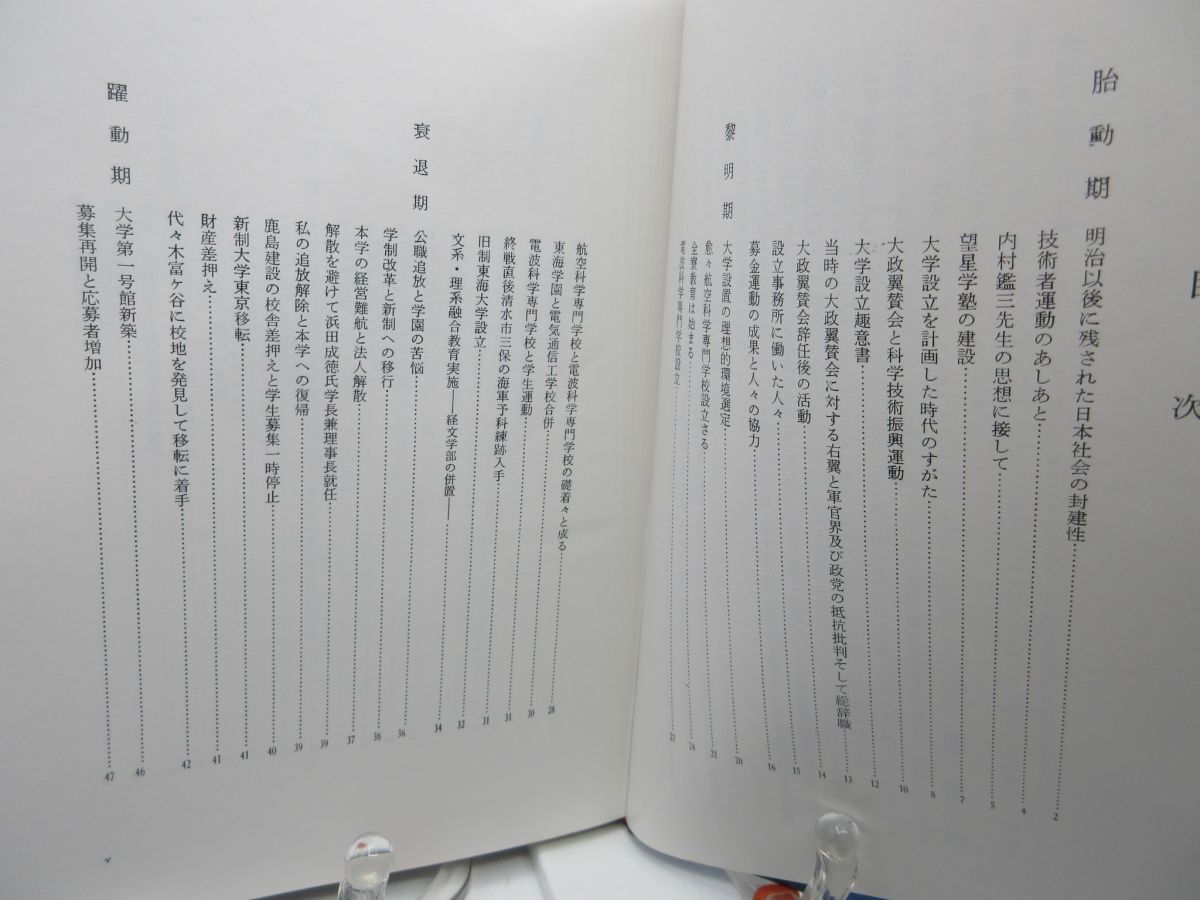 目次
胎動期
明治以後に残された日本社会の封建性……2
技術者運動のあしあと……4
内村鑑三先生の思想に接して……5
望星学塾の建設……7
大学設立を計画した時代のすがた……8
大政翼賛会と科学技術振興運動……10
大学設立趣意書……12
当時の大政翼賛会に対する右翼と軍官界及び政党の抵抗批判そして総辞職……13
大政翼賛会辞任後の活動……14
設立事務所に働いた人々……15
募金運動の成果と人々の協力……16
黎明期
大学設置の理想的環境選定……20
愈々航空科学専門学校設立さる……21
全寮教育は始まる……24
電波科学専門学校設立……27
航空科学専門学校と電波科学専門学校の礎着々と成る……28
東海学園と電気通信工学校合併……30
電波科学専門学校と学生運動……31
終戦直後清水市三保の海軍予科練跡入手……31
旧制東海大学設立……32
文系・理系融合教育実施――経文学部の併置――……34
衰退期
公職追放と学園の苦悩……36
学制改革と新制への移行……36
本学の経営難航と法人解散……37
解散を避けて浜田成徳氏学長兼理事長就任……39
私の追放解除と本学への復帰……39
鹿島建設の校舎差押えと学生募集一時停止……40
新制大学東京移転……41
財産差押え……41
代々木富ヶ谷に校地を発見して移転に着手……42
躍動期
大学第一号館新築……46
募集再開と応募者増加……47
v